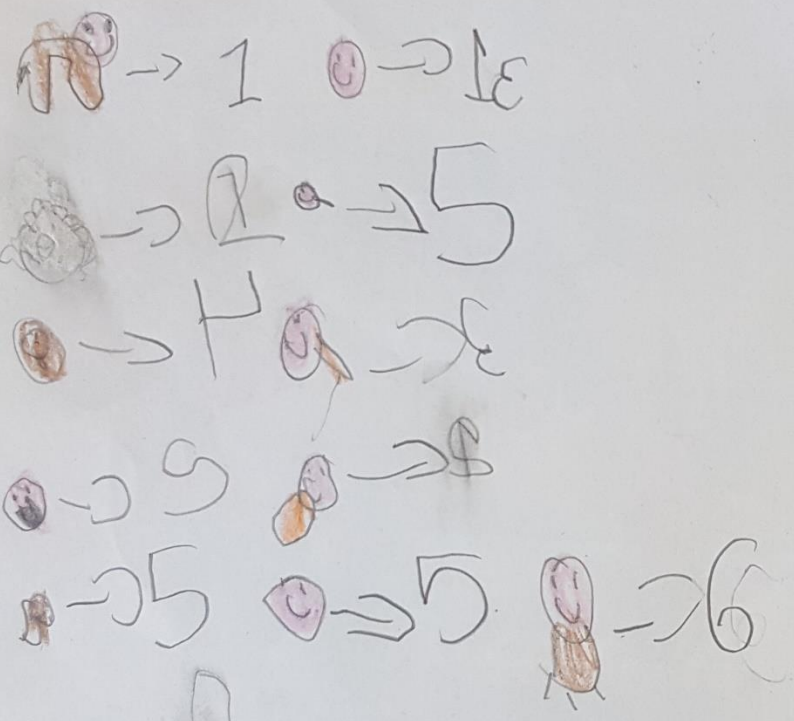 → 1 → 13
→ 2 → 5
→ 4 → 3
→ 9 → 8
→ 5 → 5 → 6